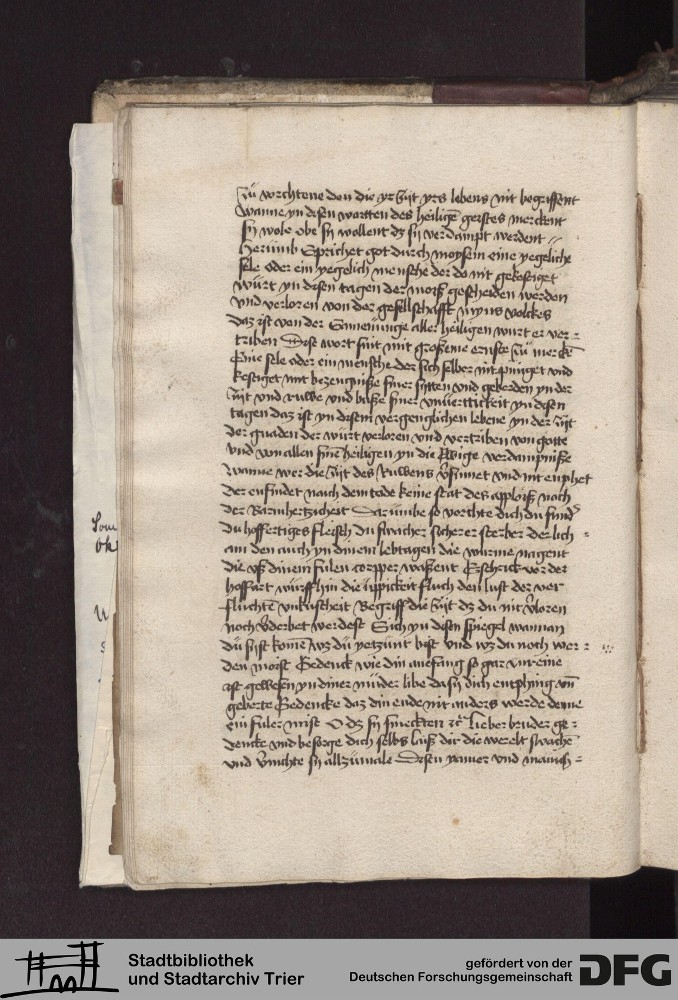 zü vorchtene den die yr zijt yrs lebens nit begriffent
Wanne yn desen wortten des heiligē geistes merckent
sy wole obe sy wollent dz sy verdampt werdent //
Herümb Sprichet got durch moysem eine yegeliche
sele oder ein yegelich mensche der do nit gekestiget
würt yn desen tagen der moiß gescheiden werden
vnd verloren von der gesellschafft myns volckes
daz ist von der Eineünge aller heiligen wurt er ver=
triben Dise wort sint mit großeme ernste zü merckē
Eine sele oder ein mensche der sich selber nit pinget vnd
kestiget mit bezeugniße siner sytten vnd geberden yn der
zijt vnd ruwe vnd buße siner
tagen daz ist yn disem vergenglichen lebene yn der zijt
der gnaden der würt verloren vnd vertriben von gotte
vnd von allen sinē heiligen yn die Ewige verdampniße
Wanne wer die zijt des Ruwens v̄sumet vnd nit enphet
der enfindet nach dem tode keine stat des applois noch
der Barmhertzicheit Dar ümbe so vorchte dich du sund̄
du hoffertiges fleisch du swacher sicherer sterber der lich=
am den auch yn dinem lebtagen die wurme nagent
die vß dinem fulen corpper waßent Erschrick vor der
hoffart würff hin die üppickeit fluch den lust der ver
fluchtē vnkuscheit Begriff die zijt dz du nit v̄loren
noch v̄derbet werdest Sich yn desem spiegel wannan
du syst komē wz du yetzünt bist vnd wz du noch wer=
den moist Gedenck wie din anefang so gar vnreine
ist gewesen yn diner müder libe da sy dich entphing vn̄
geberte Gedencke daz din ende nit anders werde denne
ein fuler mist O dz sy smeckten zc̄ Lieber bruder ge=
dencke vnd besorge dich selbs laiß dir die werelt swachē
vnd v̄nichte sy allzümale Desen yamer vnd
Stadtbibliothek
und Stadtarchiv Trier
gefördert von der
Deutschen Forschungsgemeinschaft
DFG